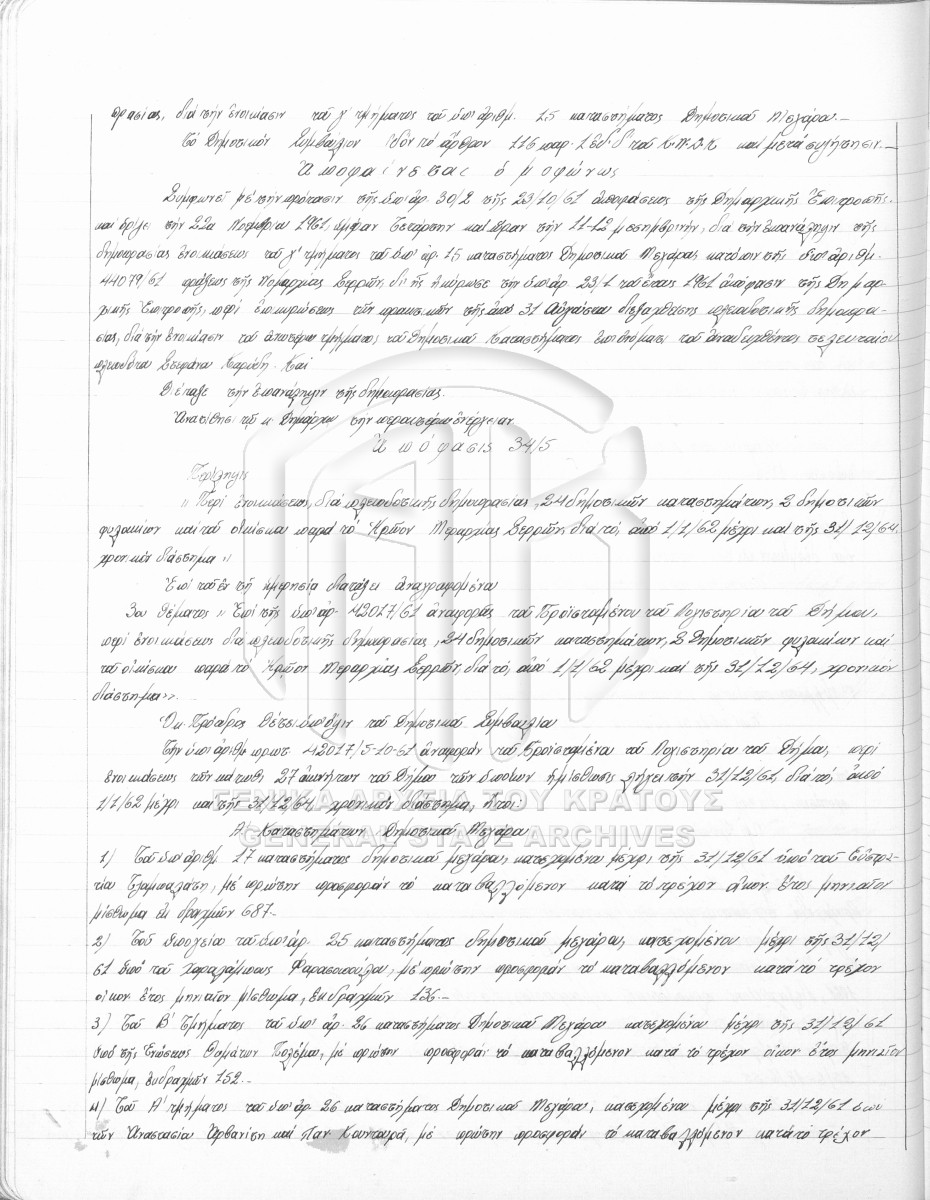 πρασίας, διά τήν ἐνοικίασιν τοῦ γ' τμήματος τοῦ ὑπ' ἀριθμ. 15 καταστήματος Δημοτικοῦ Μεγάρου.-
Τό Δημοτικόν Συμβούλιον ἰδόν τό ἄρθρον 116 παρ. 1 ἐδ. δ τοῦ Κ.Π.Δ.Κ καί μετά συζήτησιν.-
Ἀποφαίνεται ὁμοφώνως
Συμφωνεῖ μέ τήν πρότασιν τῆς ὑπ' ἀρ. 30/2 τῆς 23/10/61 ἀποφάσεως τῆς Δημαρχικῆς Ἐπιτροπῆς.
καί ὁρίζει τήν 22α Νοεμβρίου 1961, ἡμέραν Τετάρτην καί ὥραν τήν 11-12 μεσημβρινήν, διά τήν ἐπανάληψιν τῆς
δημοπρασίας ἐνοικιάσεως τοῦ γ' τμήματος τοῦ ὑπ' ἀρ. 15 καταστήματος Δημοτικοῦ Μεγάρου, κατόπιν τῆς ὑπ' ἀριθμ.
44079/61 πράξεως τῆς Νομαρχίας Σερρῶν, δι' ἧς ἠκύρωσε τήν ὑπ' ἀρ. 23/1 τοῦ ἔτους 1961 ἀπόφασιν τῆς Δημαρ-
χικῆς Ἐπιτροπῆς, περί ἐπικυρώσεως τῶν πρακτικῶν τῆς ἀπό 31 Αὐγούστου διεξαχθείσης πλειοδοτικῆς δημοπρα-
σίας, διά τήν ἐνοικίασιν τοῦ ἀνωτέρω τμήματος τοῦ Δημοτικοῦ Καταστήματος ἐπ' ὀνόματι τοῦ ἀναδειχθέντος τελευταίου
πλειοδότου Στεφάνου Καρύδη. Καί
Διέταξε τήν ἐπανάληψιν τῆς δημοπρασίας.
Ἀναθέτει τῷ κ. Δημάρχῳ τήν περαιτέρω ἐνέργειαν
Ἀπόφασις 34/5
Περίληψις
"Περί ἐνοικιάσεως, διά πλειοδοτικῆς δημοπρασίας, 24 δημοτικῶν καταστημάτων, 2 δημοτικῶν
φυλακίων καί τοῦ οἰκίσκου παρά τό Ἡρῶον Μεραρχίας Σερρῶν, διά τό, ἀπό 1/1/62 μέχρι καί τῆς 31/12/64,
χρονικόν διάστημα"
Ἐπί τοῦ ἐν τῇ ἡμερησίᾳ διατάξει ἀναγραφομένου
3ου θέματος "Ἐπί τῆς ὑπ' ἀρ. 42017/61 ἀναφορᾶς τοῦ Προϊσταμένου τοῦ Λογιστηρίου τοῦ Δήμου,
περί ἐνοικιάσεως διά πλειοδοτικῆς δημοπρασίας, 24 δημοτικῶν καταστημάτων, 2 Δημοτικῶν φυλακίων καί
τοῦ οἰκίσκου παρά τό Ἡρῶον Μεραρχίας Σερρῶν, διά τό, ἀπό 1/1/62 μέχρι καί τῆς 31/12/64, χρονικόν
διάστημα».
Ὁ κ. Πρόεδρος θέτει ὑπ' ὄψιν τοῦ Δημοτικοῦ Συμβουλίου
Τήν ὑπ' ἀριθμ. πρωτ. 42017/5-10-61 ἀναφοράν τοῦ Προϊσταμένου τοῦ Λογιστηρίου τοῦ Δήμου, περί
ἐνοικιάσεως τῶν κάτωθι 27 ἀκινήτων τοῦ Δήμου τῶν ὁποίων ἡ μίσθωσις λήγει τήν 31/12/61, διά τό, ἀπό
1/1/62 μέχρι καί τῆς 31/12/64, χρονικόν διάστημα, ἤτοι:
ΓΕΝΙΚΑ ΑΡΧΕΙΑ ΤΟΥ ΚΡΑΤΟΥΣ
GENERAL STATE ARCHIVES
Α) Καταστημάτων Δημοτικοῦ Μεγάρου
1) Τοῦ ὑπ' ἀριθμ. 17 καταστήματος δημοτικοῦ μεγάρου, κατεχομένου μέχρι τῆς 31/12/61 ὑπό τοῦ Εὐστρα-
τίου, μέ πρώτην προσφοράν τό καταβαλλόμενον κατά τό τρέχον οἰκον. ἔτος μηνιαῖον
μίσθωμα ἐκ δραχμῶν 687.-
2) Τοῦ ὑπογείου τοῦ ὑπ' ἀρ. 25 καταστήματος δημοτικοῦ μεγάρου, κατεχομένου μέχρι τῆς 31/12/
61 ὑπό τοῦ Χαραλάμπους Φαρασοπούλου, μέ πρώτην προσφοράν τό καταβαλλόμενον κατά τό τρέχον
οἰκον. ἔτος μηνιαῖον μίσθωμα, ἐκ δραχμῶν 136.-
3) Τοῦ Β' Τμήματος τοῦ ὑπ' ἀρ. 26 καταστήματος Δημοτικοῦ Μεγάρου κατεχομένου μέχρι τῆς 31/12/61
ὑπό τῆς Ἑνώσεως Θυμάτων Πολέμου, μέ πρώτην προσφοράν τό καταβαλλόμενον κατά τό τρέχον οἰκον. ἔτος μηνιαῖον
μίσθωμα, ἐκ δραχμῶν 152.-
4) Τοῦ Α' τμήματος τοῦ ὑπ' ἀρ. 26 καταστήματος Δημοτικοῦ Μεγάρου, κατεχομένου μέχρι τῆς 31/12/61 ὑπό
τῶν Ἀναστασίου Ἀρβανίτη καί Παν. Κουντουρᾶ, μέ πρώτην προσφοράν τό καταβαλλόμενον κατά τό τρέχον